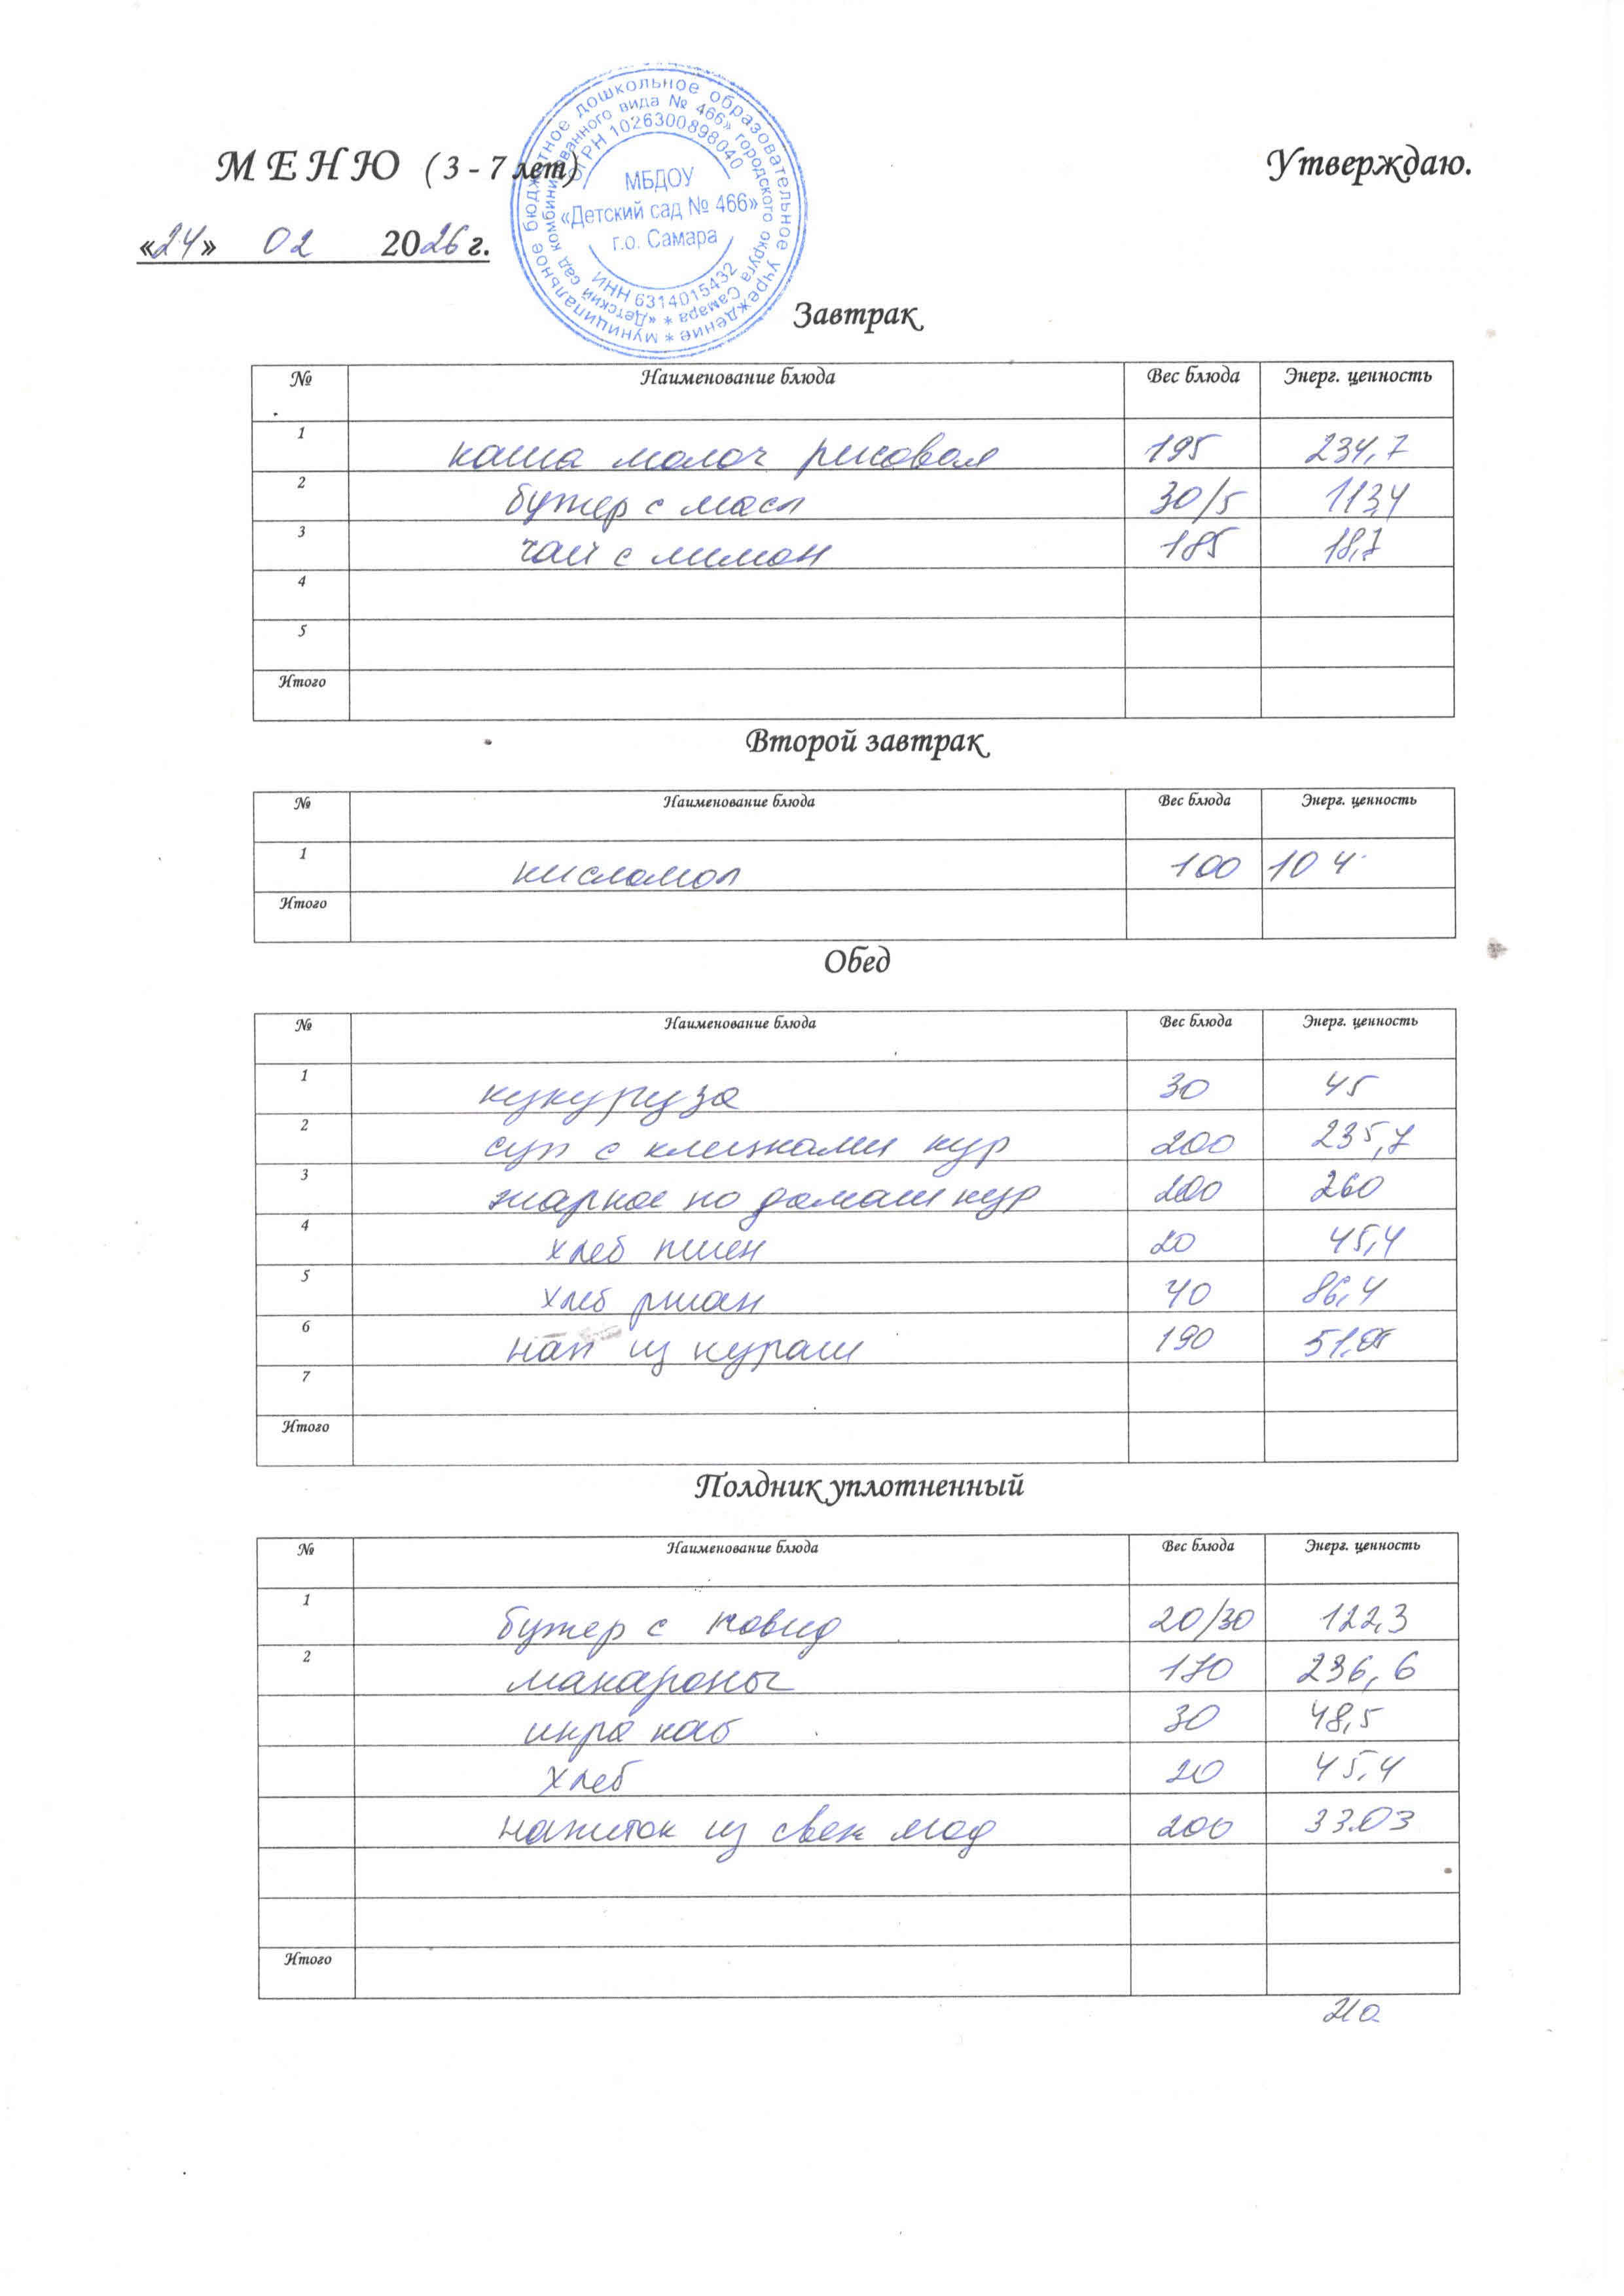 муниципальное бюджетное дошкольное образовательное учреждение *
«Детский сад комбинированного вида № 466» городского округа Самара *
ОГРН 1026300898040
МБДОУ
«Детский сад № 466»
г.о. Самара
ИНН 6314015432
МЕНЮ (3 - 7 лет) Утверждаю.
«24» 02 2026 г.
Завтрак
№ Наименование блюда Вес блюда Энерг. ценность
1 каша молоч рисовая 195 234,7
2 бутер с масл 30/5 113,4
3 чай с лимон 185 18,7
4
5
Итого
Второй завтрак
№ Наименование блюда Вес блюда Энерг. ценность
1 кисломол 100 104
Итого
Обед
№ Наименование блюда Вес блюда Энерг. ценность
1 кукуруза 30 45
2 суп с клецками кур 200 235,7
3 жаркое по домаш кур 200 260
4 хлеб пшен 20 45,4
5 хлеб ржан 40 86,4
6 нап из кураги 190
7
Итого
Полдник уплотненный
№ Наименование блюда Вес блюда Энерг. ценность
1 бутер с повид 20/30 122,3
2 макароны 170 236,6
икра каб 30 48,5
хлеб 20 45,4
напиток из свеж ягод 200 33.03
Итого